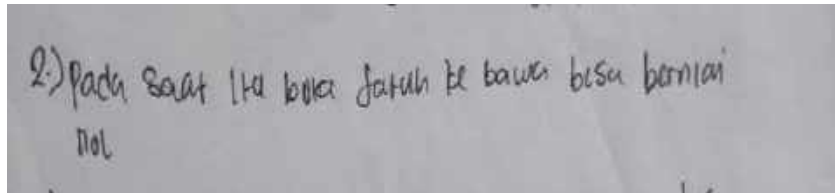 2.) Pada saat ita bola jatuh ke bawa bisa bernilai
nol